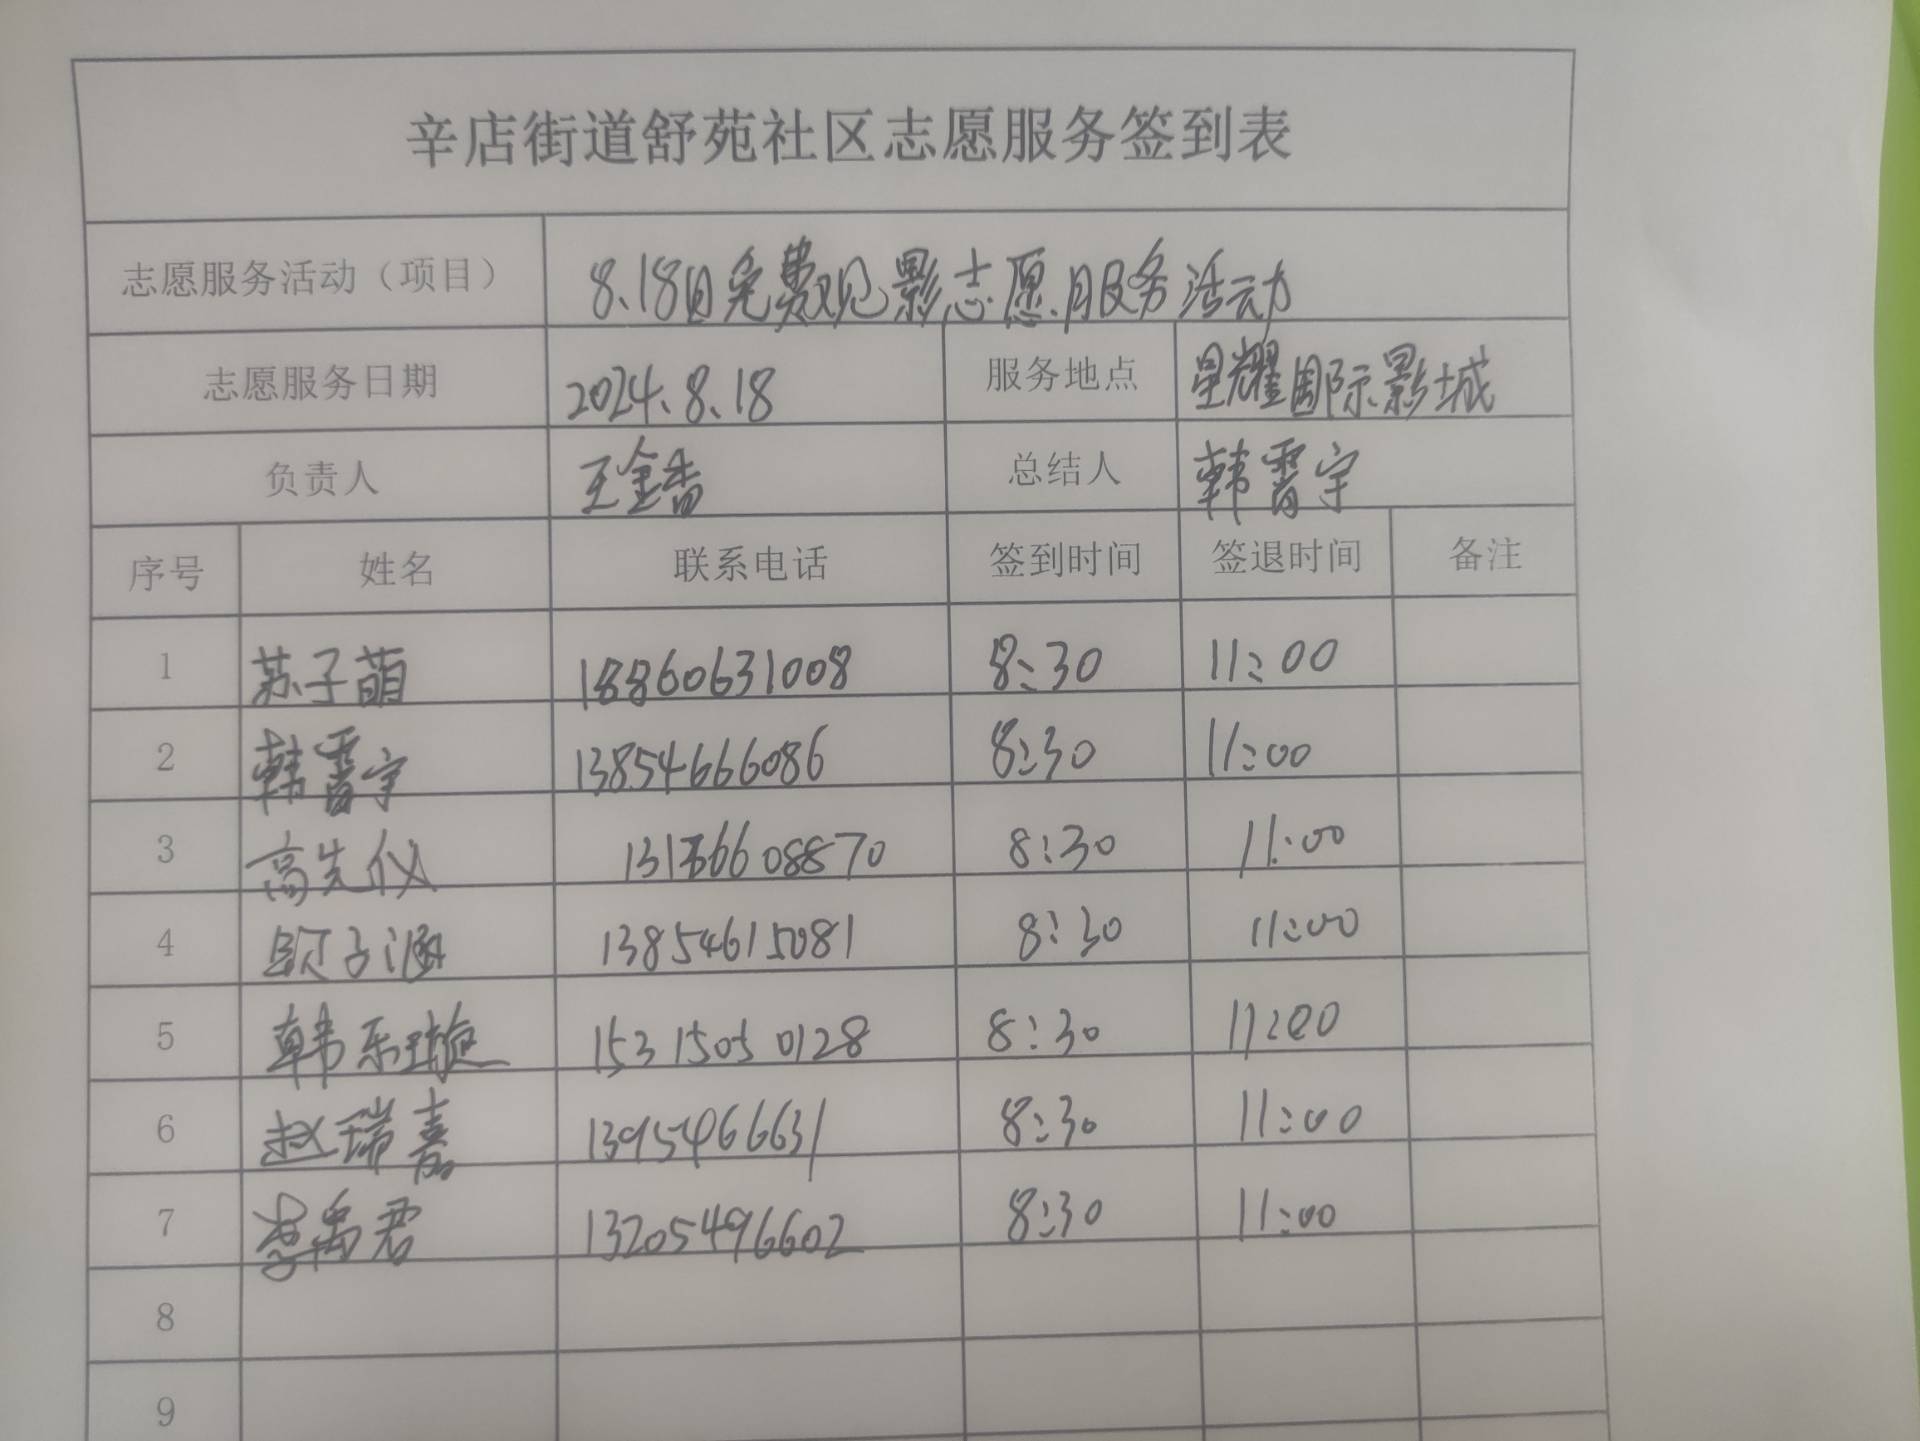 辛店街道舒苑社区志愿服务签到表
志愿服务活动（项目） 8.18日免费观影志愿服务活动
志愿服务日期 2024.8.18 服务地点 星耀国际影城
负责人 王金香 总结人 韩霄宇
序号 姓名 联系电话 签到时间 签退时间 备注
1 苏子萌 18860631008 8:30 11:00
2 韩霄宇 13854666086 8:30 11:00
3 高先仪 8:30 11:00
4 子涵 13854615081 8:30 11:00
5 韩乐璇 15315050128 8:30 11:00
6 赵瑞嘉 13954966631 8:30 11:00
7 李禹君 13205496602 8:30 11:00
8
9